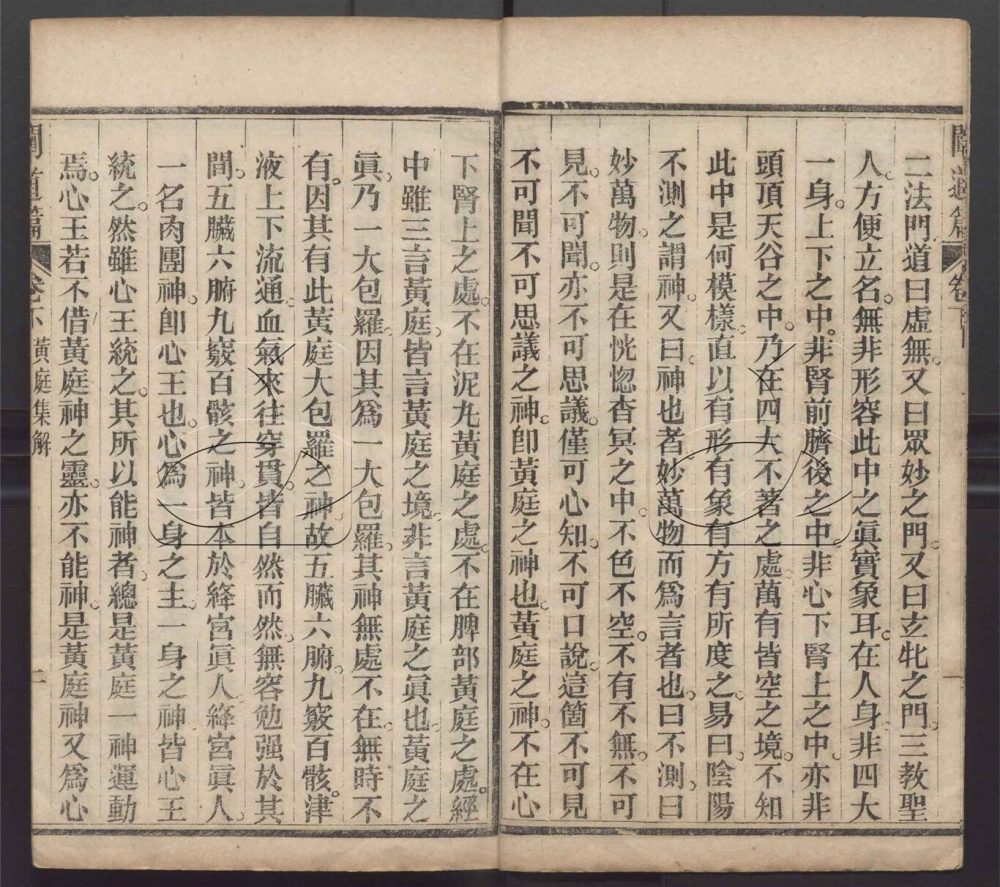 二法門。道曰虛無。又曰眾妙之門。又曰玄牝之門。三教聖
人。方便立名。無非形容此中之眞實象耳。在人身非四大
一身。上下之中。非腎前臍後之中。非心下腎上之中。亦非
頭頂天谷之中。乃在四大不著之處。萬有皆空之境。不知
此中是何模樣。直以有形有象有方有所度之。易曰。陰陽
不測之謂神。又曰。神也者。妙萬物而爲言者也。曰不測。曰
妙萬物。則是在恍惚杳冥之中。不色不空。不有不無。不可
見。不可聞。亦不可思議。僅可心知。不可口說。這箇不可見
不可聞不可思議之神。卽黃庭之神也。黃庭之神。不在心
下腎上之處。不在泥丸黃庭之處。不在脾部黃庭之處。經
中雖三言黃庭。皆言黃庭之境。非言黃庭之眞也。黃庭之
眞。乃一大包羅。因其爲一大包羅。其神無處不在。無時不
有。因其有此黃庭大包羅之神。故五臟六腑。九竅百骸。津
液上下流通。血氣來往穿貫。皆自然而然。無容勉强於其
間。五臟六腑九竅百骸之神。皆本於絳宮眞人。絳宮眞人。
一名肉團神。卽心王也。心爲一身之主。一身之神。皆心王
統之。然雖心王統之。其所以能神者。總是黃庭一神運動
焉。心王若不借黃庭神之靈。亦不能神。是黃庭神又爲心
卷下 黃庭集解
一